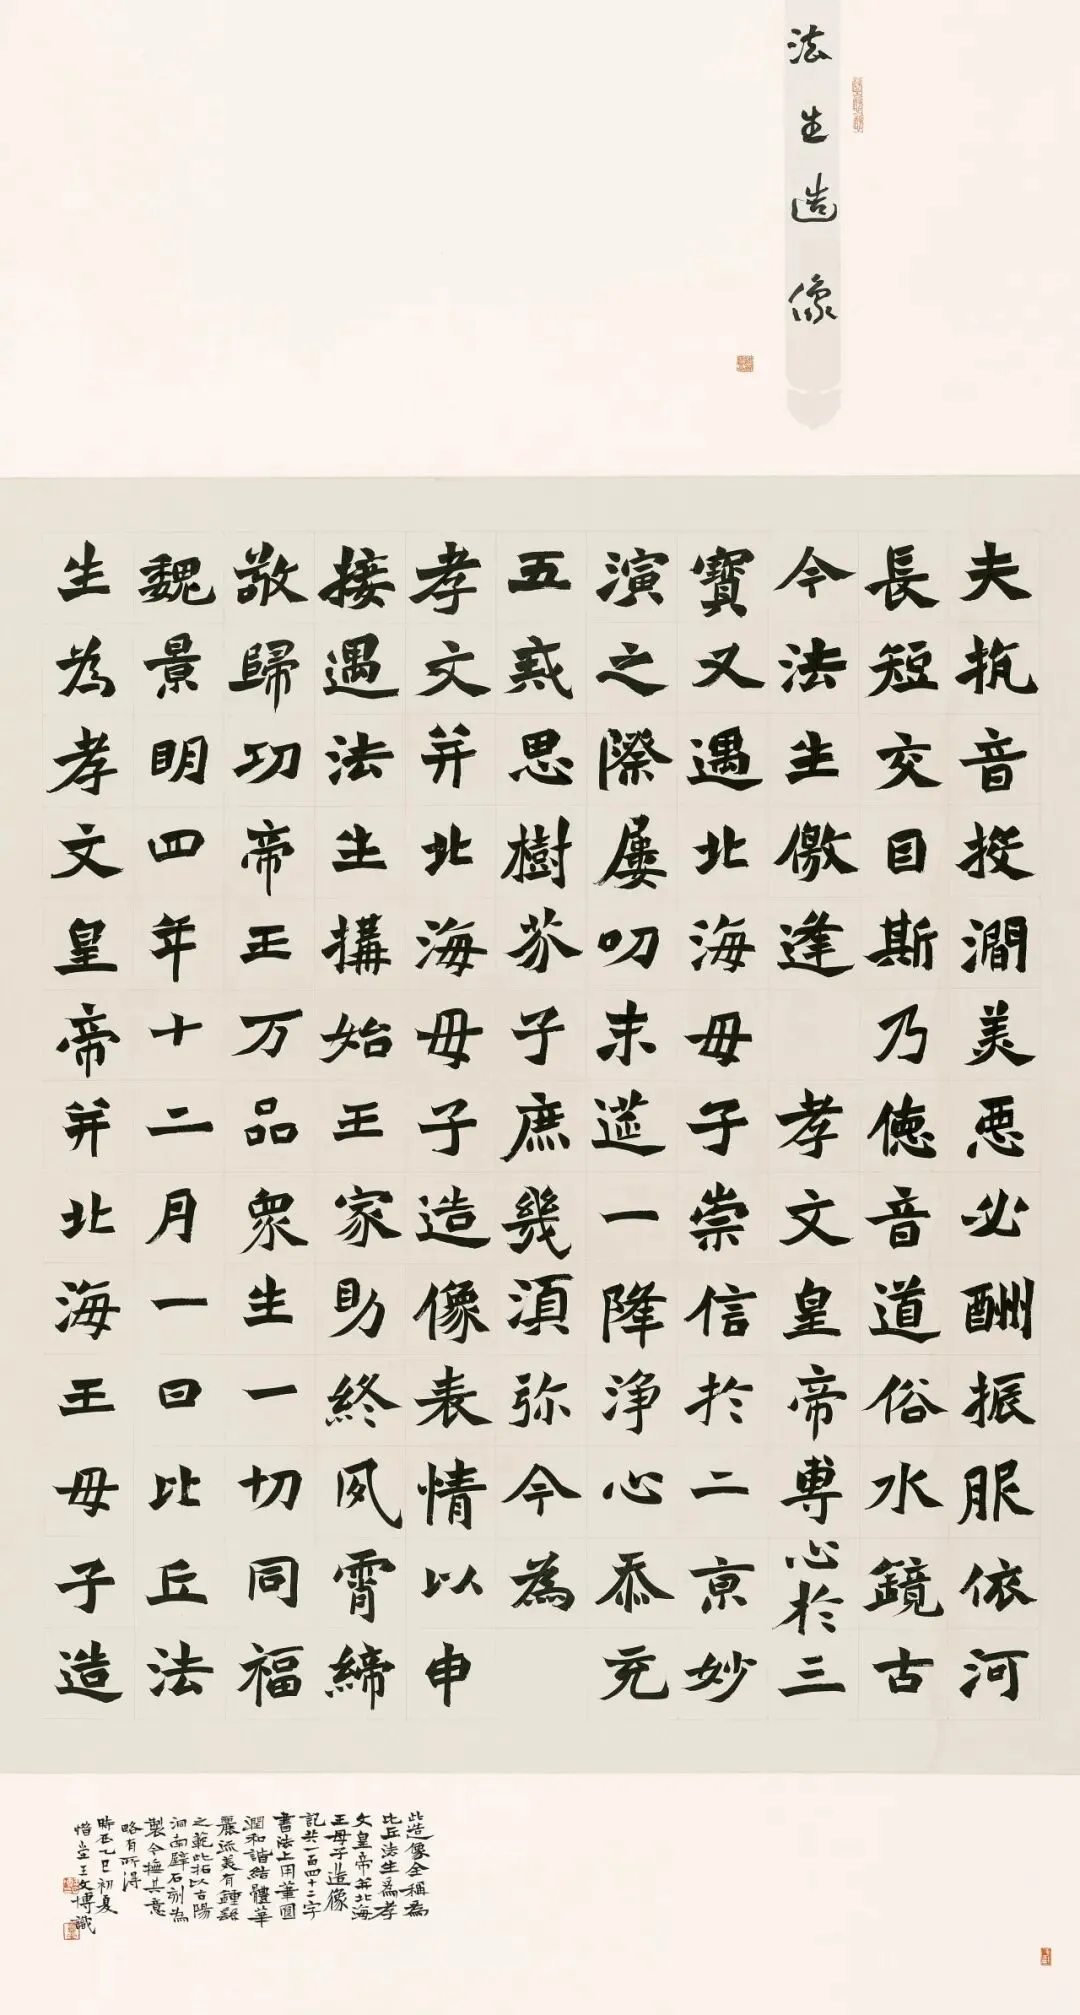 法生造像
夫抗音投澗美惡必酬振服依河
長短交目斯乃德音道俗水鏡古
今法生儌逢孝文皇帝專心於三
寶又遇北海母子崇信於二京妙
演之際屢叨末筵一降淨心忝充
五戒思樹芥子庶幾須弥今為
孝文并北海母子造像表情以申
接遇法生搆始王家助終夙霄締
敬歸功帝王万品眾生一切同福
魏景明四年十二月一日比丘法
生為孝文皇帝并北海王母子造
此造像全稱為
比丘法生為孝
文皇帝并北海
王母子造像
記共一百四十二字
書法上用筆圓
潤和諧結體華
麗流美有鍾繇
之範此拓以古陽
洞南壁石刻為
製今撫其意
略有所得
時在乙巳初夏
王文博識